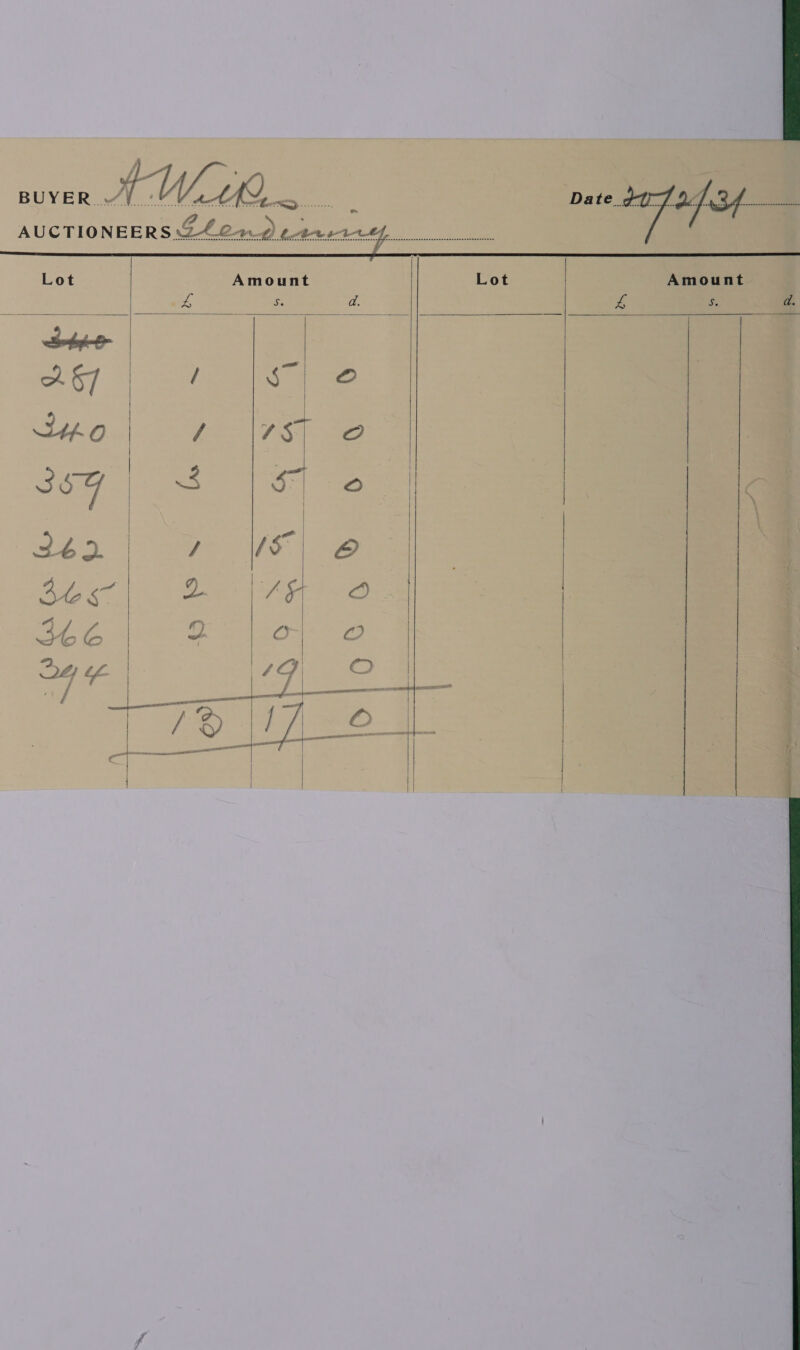 BUYER A
Date 20/2/34
AUCTIONEERS Glendening
Lot Amount Lot Amount
£ s. d. £ s. d.
340
257 1 5 0
340 1 15 0
359 3 5 0
362 1 15 0
365 2 18 0
366 2 0 0
19 0
13 17 0